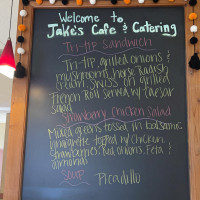 Welcome to
Jake's Cafe & Catering
Tri-tip Sandwich
Tri-tip grilled onions &
mushrooms, horse radish
cream, swiss on grilled
French Roll served w/ caesar
Salad
Strawberry Chicken Salad
Mixed greens tossed in balsamic
vinaigrette topped w/ chicken,
strawberries, Red onions, Feta, &
almonds
Soup Picadillo